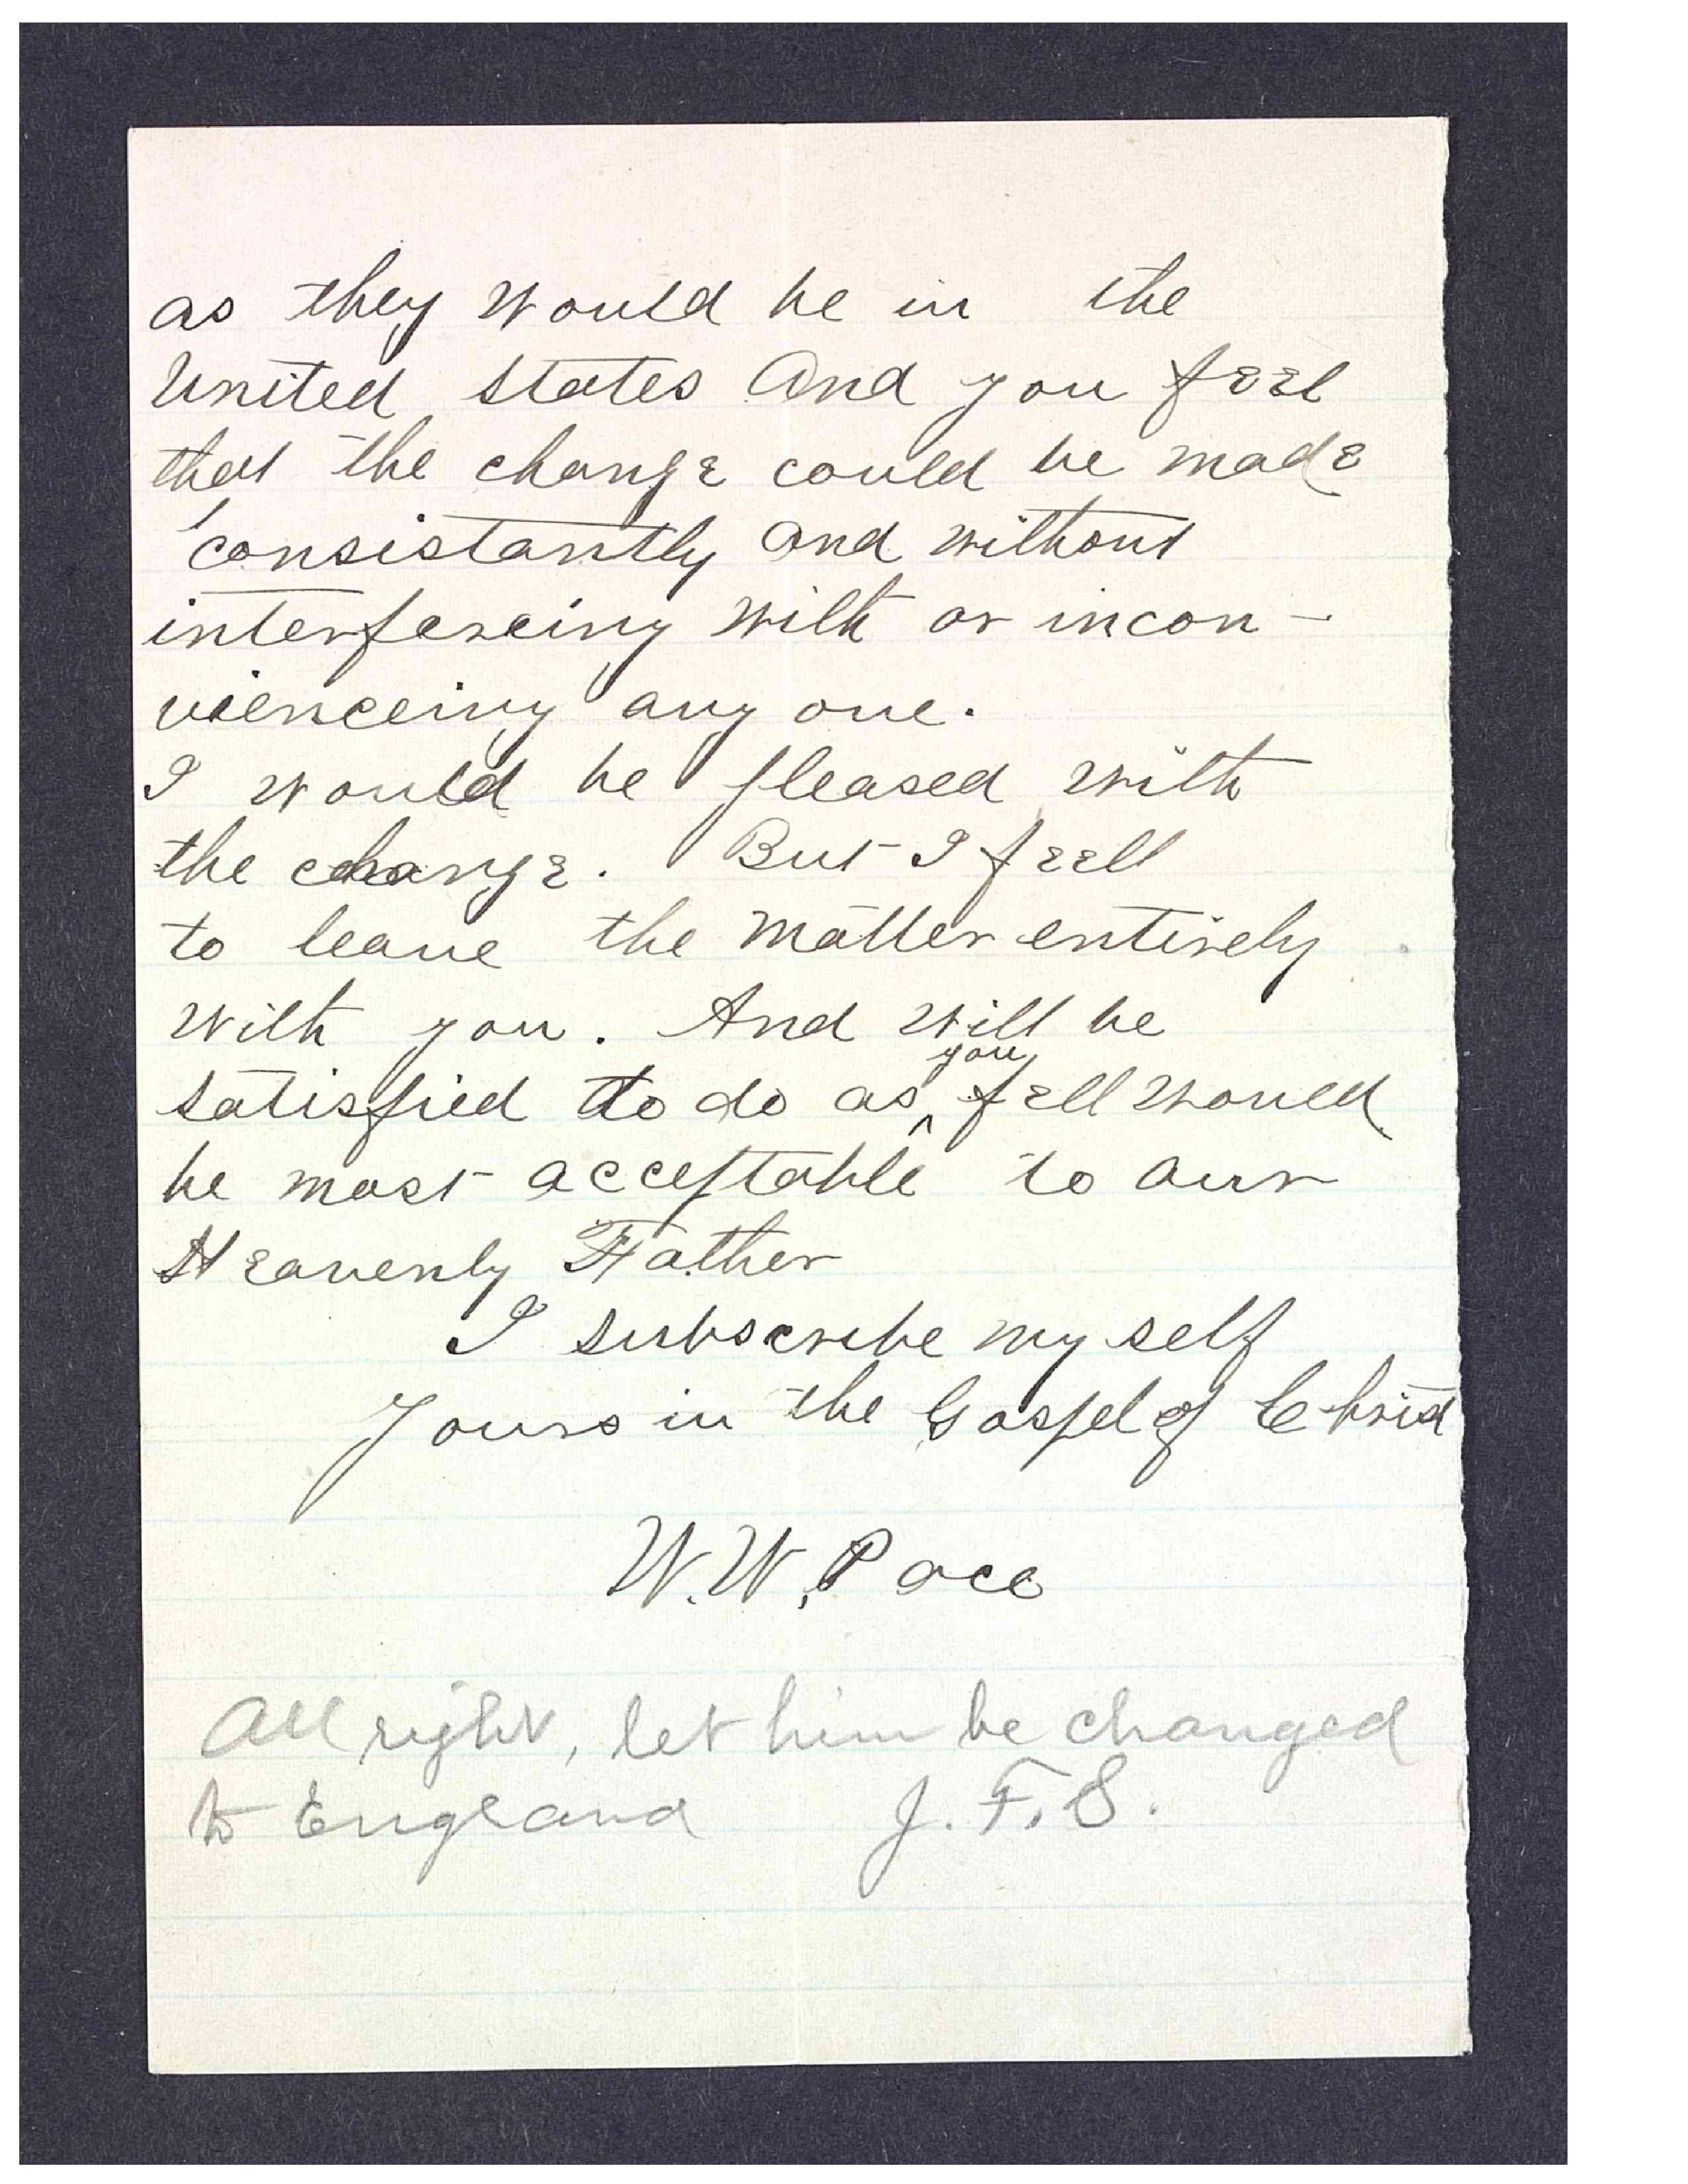 as they would be in the
United states And you feel
that the change could be made
consistantly and without
interfereing with or incon-
vienceing any one.
I would be pleased with
the change. But I feell
to leave the matter entirely
with you. And will be
you
satisfied to do as ^ fell would
be most acceptable to our
Heavenly Father
I subscribe my self
Yours in the Gospel of Christ
W.W. Pace
All right, let him be changed
to England J. F. S.